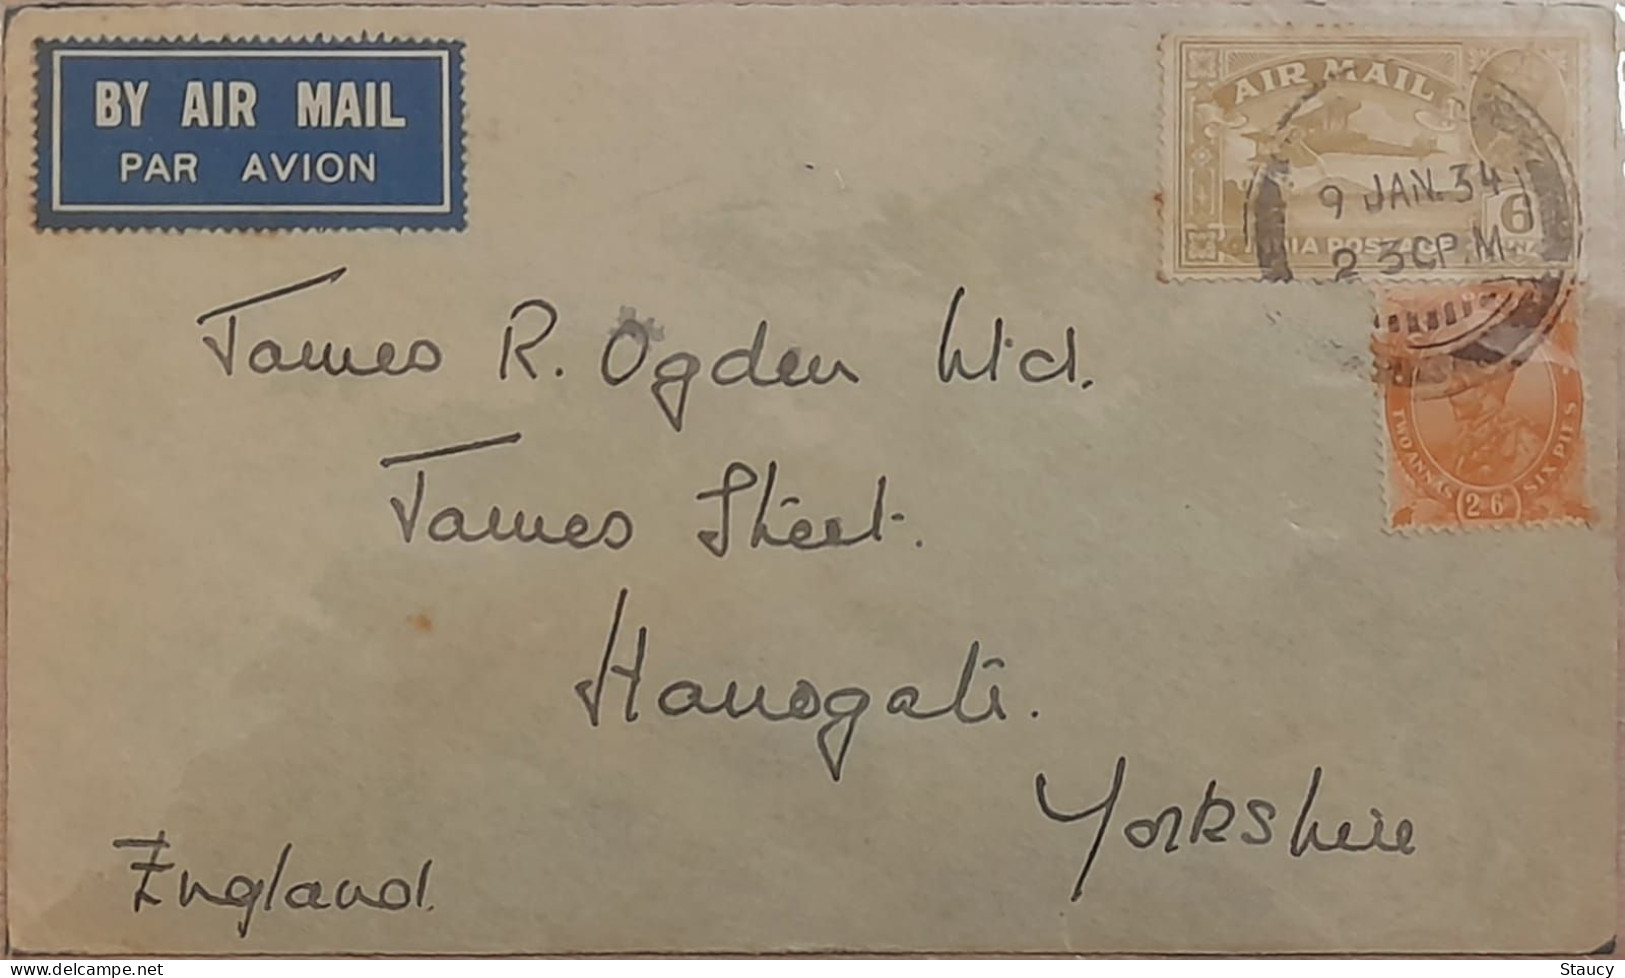 BY AIR MAIL
PAR AVION
AIR MAIL
6
INDIA POSTAGE
9 JAN. 34
2 30P.M
TWO ANNAS
2 6
SIX PIES
James R. Ogden Ltd.
James Street.
Harrogate.
Yorkshire
England.
Staucy